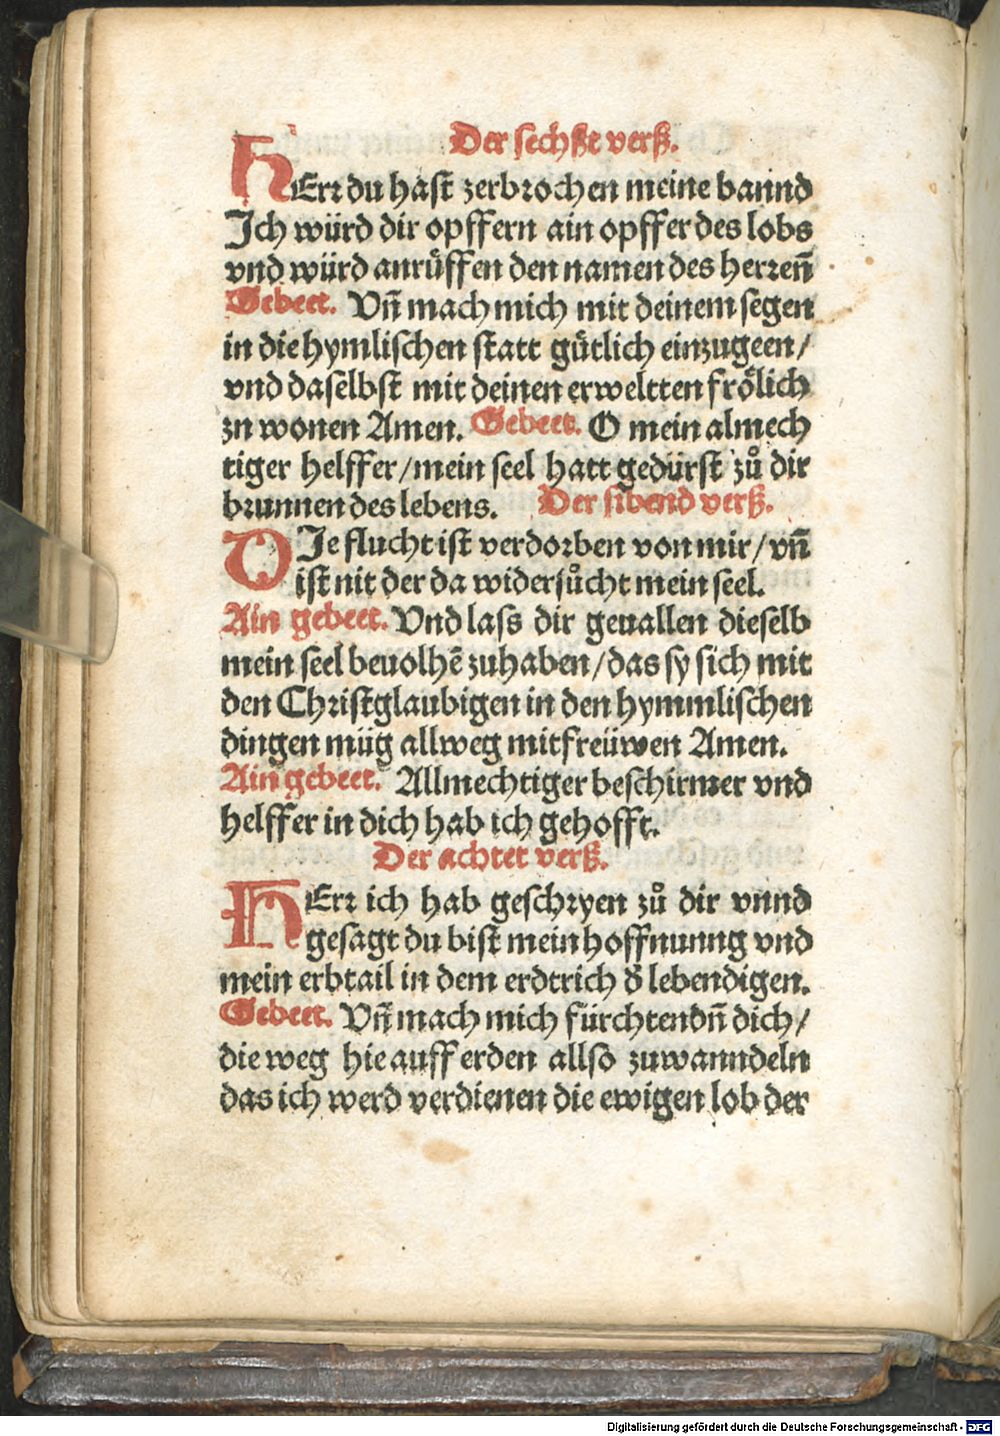 Der sechſte verß.
HErꝛ du haſt zerbꝛochen meine bannd
Jch würd dir opffern ain opffer des lobs
vnd würd anrůffen den namen des herꝛen̄
Gebeet. Vn̄ mach mich mit deinem ſegen
in die hymliſchen ſtatt gůtlich einzugeen/
vnd daſelbſt mit deinen erweltten frölich
zu wonen Amen. Gebeet. O mein almech
tiger helffer/mein ſeel hatt gedürſt zů dir
bꝛunnen des lebens. Der ſibend verß.
DJe flucht iſt verdoꝛben von mir/vn̄
iſt nit der da widerſůcht mein ſeel.
Ain gebeet. Vnd laſs dir geuallen dieſelb
mein ſeel beuolhē zuhaben/das ſy ſich mit
den Chꝛiſtglaubigen in den hymmliſchen
dingen müg allweg mitfreüwen Amen.
Ain gebeet. Allmechtiger beſchirmer vnd
helffer in dich hab ich gehofft.
Der achtet verß.
HErꝛ ich hab geſchꝛyen zů dir vnnd
geſagt du biſt mein hoffnunng vnd
mein erbtail in dem erdtrich d̕ lebendigen.
Gebeet. Vn̄ mach mich fürchtendn̄ dich/
die weg hie auff erden allſo zuwanndeln
das ich werd verdienen die ewigen lob der
Digitalisierung gefördert durch die Deutsche Forschungsgemeinschaft - DFG